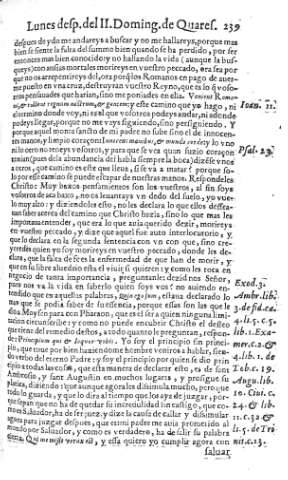 Lunes desp. del II. Doming. de Quares. 239
despues de ydo me andareys a buscar y no me hallareys, porque mas
bien se siente la falta del summo bien quando se ha perdido, por ser
entonces mas bien conocido y no hallando la vida (aunque la bus-
queys) con ansias mortales morireys en vuestro peccado, ora sea por
que no os arrepentireys del, ora porq̃ los Romanos en pago de auer-
me puesto en vna cruz, destruyran vuestro Reyno, que es lo q̃ voso-
tros pensauades que harian, sino me poniades en ella. Venient Roma-
ni, & tollent regnum nostrum, & gentem; y este camino que yo hago, ni
el termino donde voy, ni real que vosotros podeys andar, ni adonde
podeys llegar, porque no me vays siguiendo, sino persiguiendo. Y
porque aquel monte sancto de mi padre no sube sino el de innocen-
tes manos, y limpio coraçon: Innocens manibus, & mundo corde, y lo vno
ni lo otro no teneys vosotros, y para que se vea quan suzio coraçon
tenian (pues dela abundancia del habla siempre la boca) dizẽse vnos
a otros, que camino es este que lleua, si se va a matar? porque so-
lo por esse camino se puede escapar de nuestras manos. Respondeles
Christo: Muy baxos pensamientos son los vuestros, al fin soys
vosotros de acà baxo, no os leuantays vn dedo del suelo, yo vue-
lo muy alto: y diziendoles esto, no les declara lo que ellos dessea-
uan saber acerca del camino que Christo hazia, sino lo que mas les
importaua entender, que era lo que auia querido dezir, morireys
en vuestro peccado, y dize que aquel fue auto interlocutorio, y
que lo declara en la segunda sentencia con vn con que, sino cre-
yeredes quien yo soy morireys en vuestro peccado, donde les de-
clara, que la falta de fe es la enfermedad de que han de morir, y
que en su libre aluedrio esta el viuir si quieren: y como les toca en
negocio de tanta importancia, preguntanle: dezid nos Señor,
pues nos va la vida en saberlo quien soys vos?
tendido que en aquellas palabras, Ego sum, estaua declarado lo
que se podia saber de su essencia, porque essas son las que le
dio Moysen para con Pharaon, que es el ser a quien ninguna limi-
tacion circunscribe: y como no puede encubrir Christo el desseo
que tiene del remedio destos, a todo quanto le preguntan, respon-
de: Principium qui & loquor vobis. Yo soy el principio sin princi-
pio, que tuue por bien haziendome hombre veniros a hablar, sien-
do verbo del eterno Padre: y soy el principio por quien se dio prin-
cipio a todas las cosas, que esta manera de declarar esto, es de sant
Ambrosio, y sant Augustin en muchos lugares, y prosigue su
platica, diziendo: que aunque agora les dissimula mucho, pero que
todo lo guarda, y que lo dira al tiempo que los aya de juzgar, por-
que sepan que no ha de quedar su incredulidad sin castigo, que co-
mo es Saluador, ha de ser juez. y dize la causa de callar y dissimular
agora para juzgar despues, que este mi padre me auia prometido al
mundo por Saluador, y como es verdadero, ha de salir su palabra
cierta. Qui me misit verax est, y assi quiero yo cumplir agora con
saluar
Ioan. 11.
Psal. 23.
Exod. 3.
Ambr. lib.
3. de fid. ca.
4. li. 5. c. 5.
lib. 1. Exa-
mer. c. 2. &
4. lib. 1. de
Tob. c. 19.
Augu. lib.
10. Ciui. c.
24. & lib.
11. c. 32. &
li. 5. de Tri-
nit. c. 13.